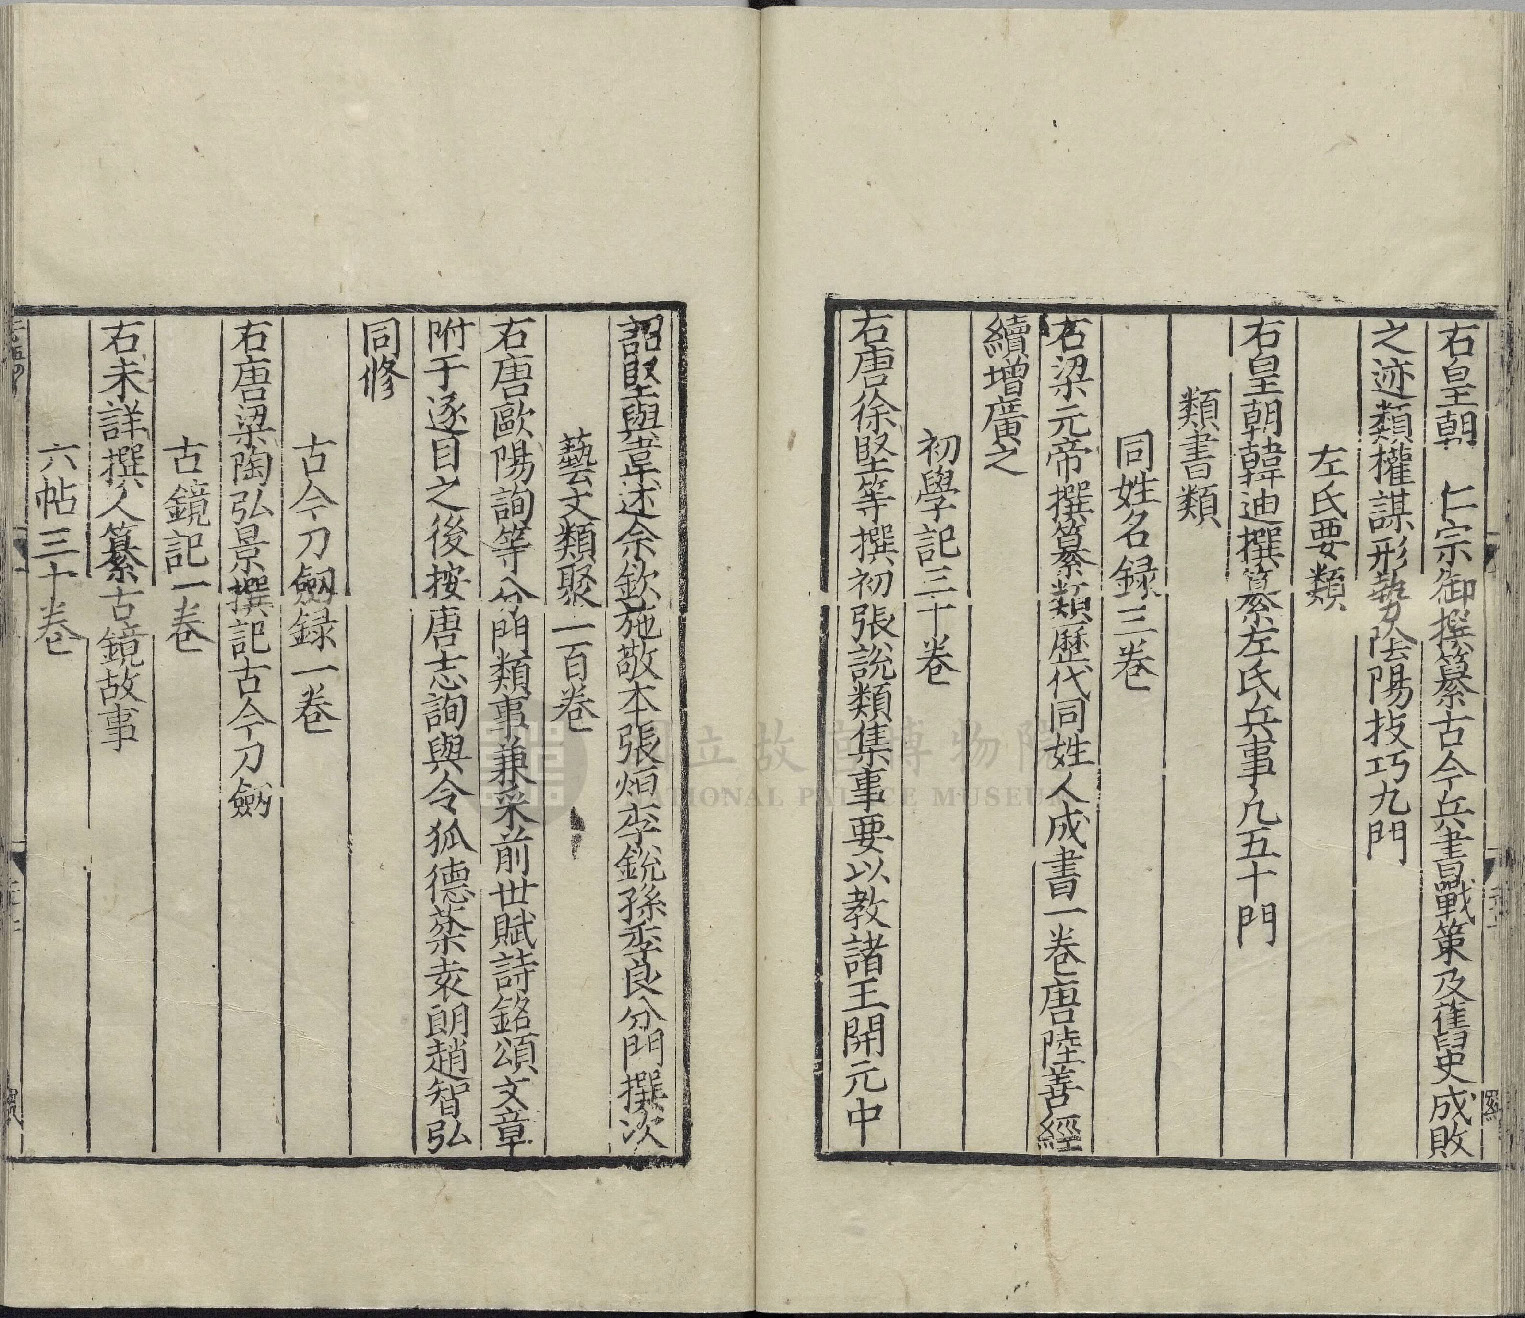 右皇朝　仁宗御撰纂古今兵書戰策及舊史成敗
之迹類權謀形勢陰陽技巧九門
左氏要類
右皇朝韓迪撰纂左氏兵事凡五十門
類書類
同姓名録三卷
右梁元帝撰纂類歷代同姓人成書一卷唐陸善經
續增廣之
初學記三十卷
右唐徐堅等撰初張說類集事要以教諸王開元中
詔堅與韋述余欽施敬本張烜李銳孫季良分門撰次
藝文類聚一百卷
右唐歐陽詢等分門類事兼采前世賦詩銘頌文章
附于逐目之後按唐志詢與令狐德棻袁朗趙智弘
同修
古今刀劔録一卷
右唐梁陶弘景撰記古今刀劔
古鏡記一卷
右未詳撰人纂古鏡故事
六帖三十卷
國立故宮博物院
NATIONAL PALACE MUSEUM